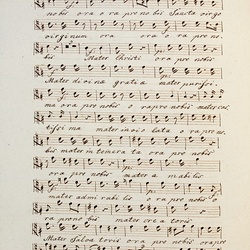 nobis ora ora pro nobis Sancta virgo
virginum ora ora o ra pro no
bis Mater Christi ora pro nobis
Mater divinæ gratiæ mater purissi
ma ora pro nobis o ra pro nobis mater cas
tissima mater inviolata o ra pro no
bis mater intemerata ora pro nobis
ora pro nobis mater amabilis
mater admirabilis o ra pro nobis o
ra pro nobis mater creatoris
Mater Salvatoris ora pro nobis ora pro